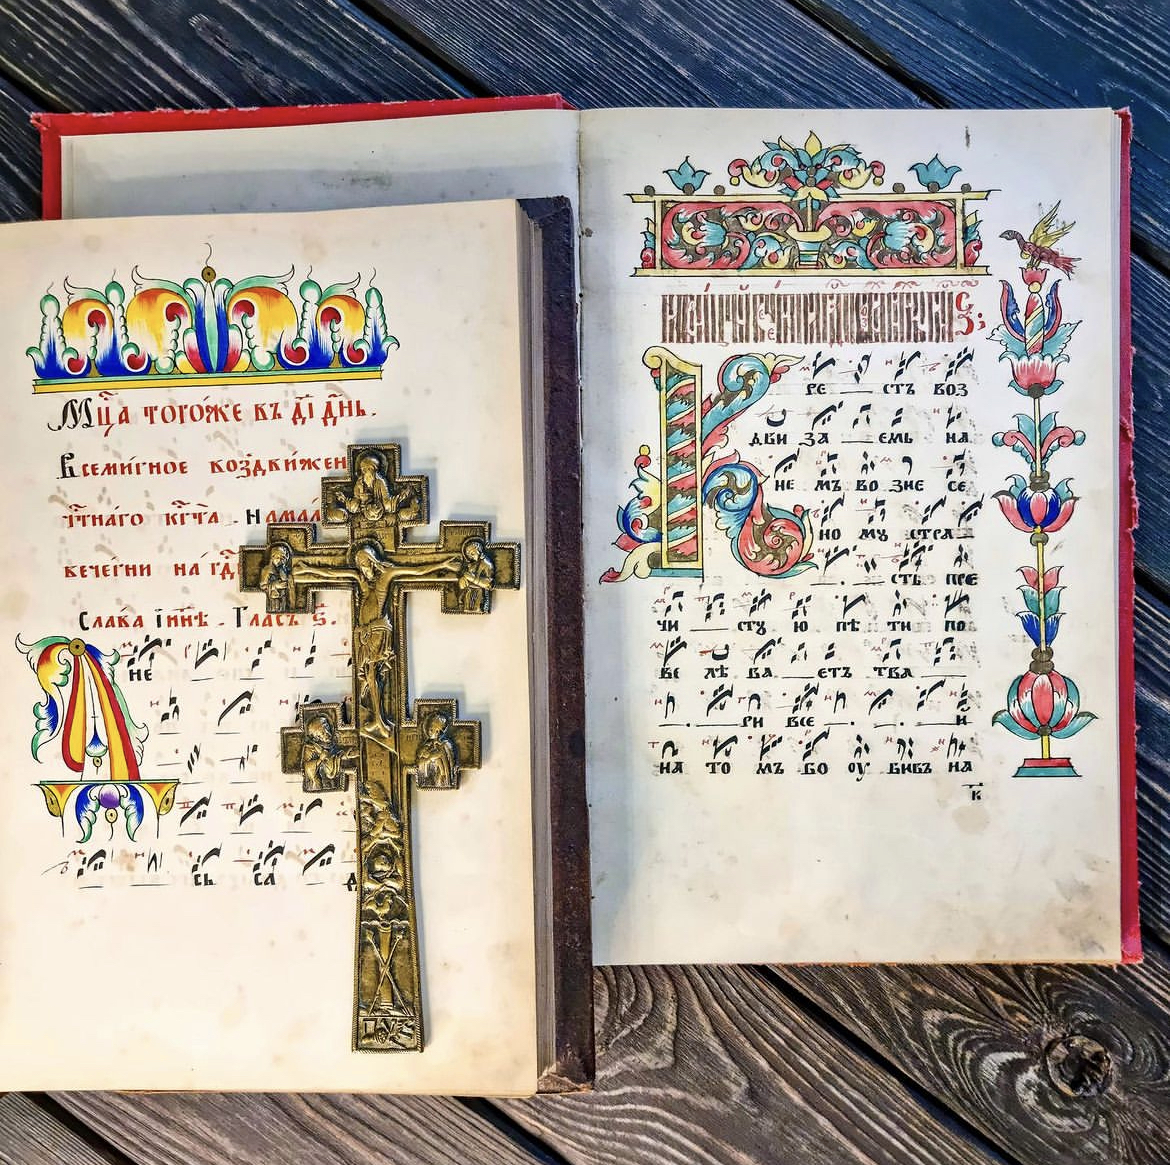 Мц҃а тогоже въ д҃і дн҃ь.
Всемирное воздвижен
ч҇тнаго кр҇та . Намал
вечерни на гд҇
Слава і нн҃ѣ . Гласъ ѕ҃.
не
сь са д
ре сть воз
дви за емь на
не мъ во зне се
но му стра
сть пре
чи сту ю пѣ ти по
ве лѣ ва етъ тва
ри все и
на то мъ бо оу бивъ на
к